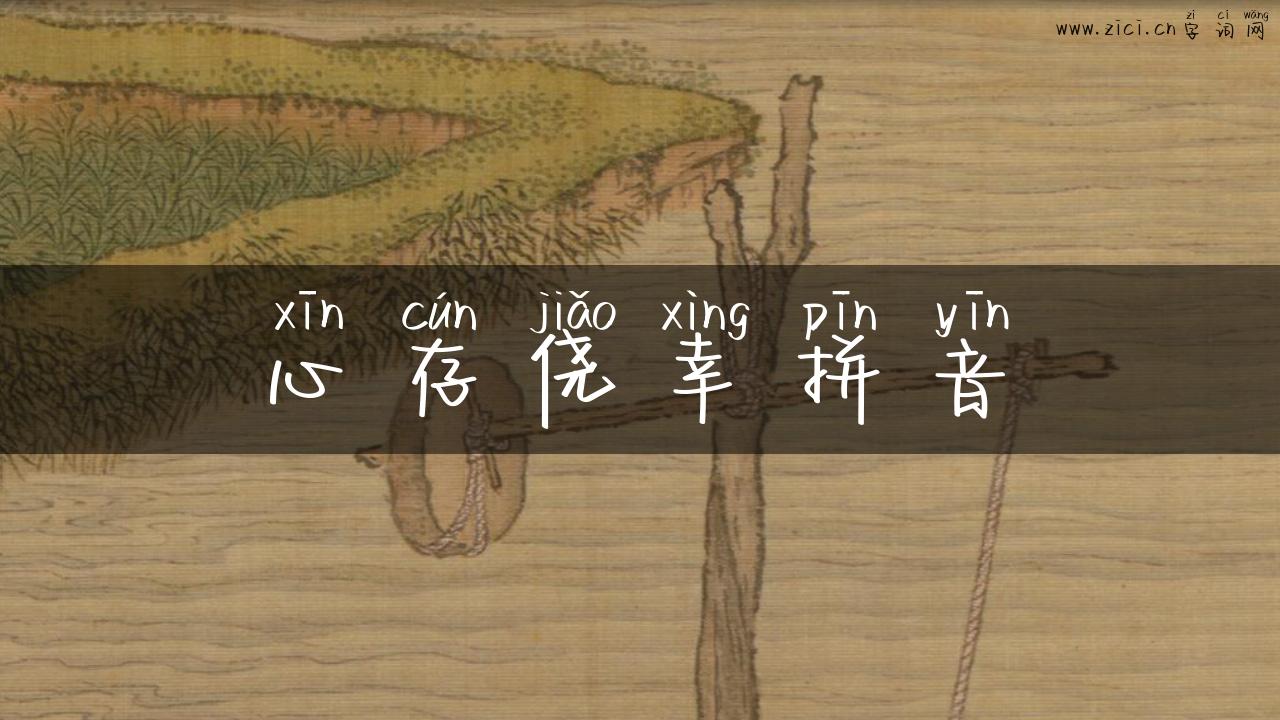 zì cí wǎng
www.zici.cn 字词网
xīn cún jiǎo xìng pīn yīn
心存侥幸拼音